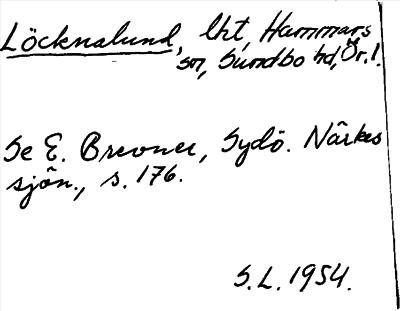 Löcknalund, lht, Hammars
sn, Sundbo hd, Ör. l.
Se E. Brevner, Sydö. Närkes
sjön., s. 176.
S.L. 1954.